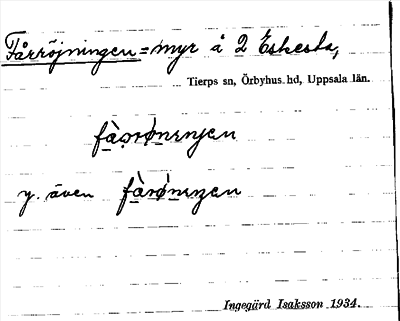 Fårröjningen = myr å 2 Eskesta,
Tierps sn, Örbyhus hd, Uppsala län.
fà̱o̱rø̀nenjen
y. även fà̱rø̀nenzen
Ingegärd Isaksson 1934.